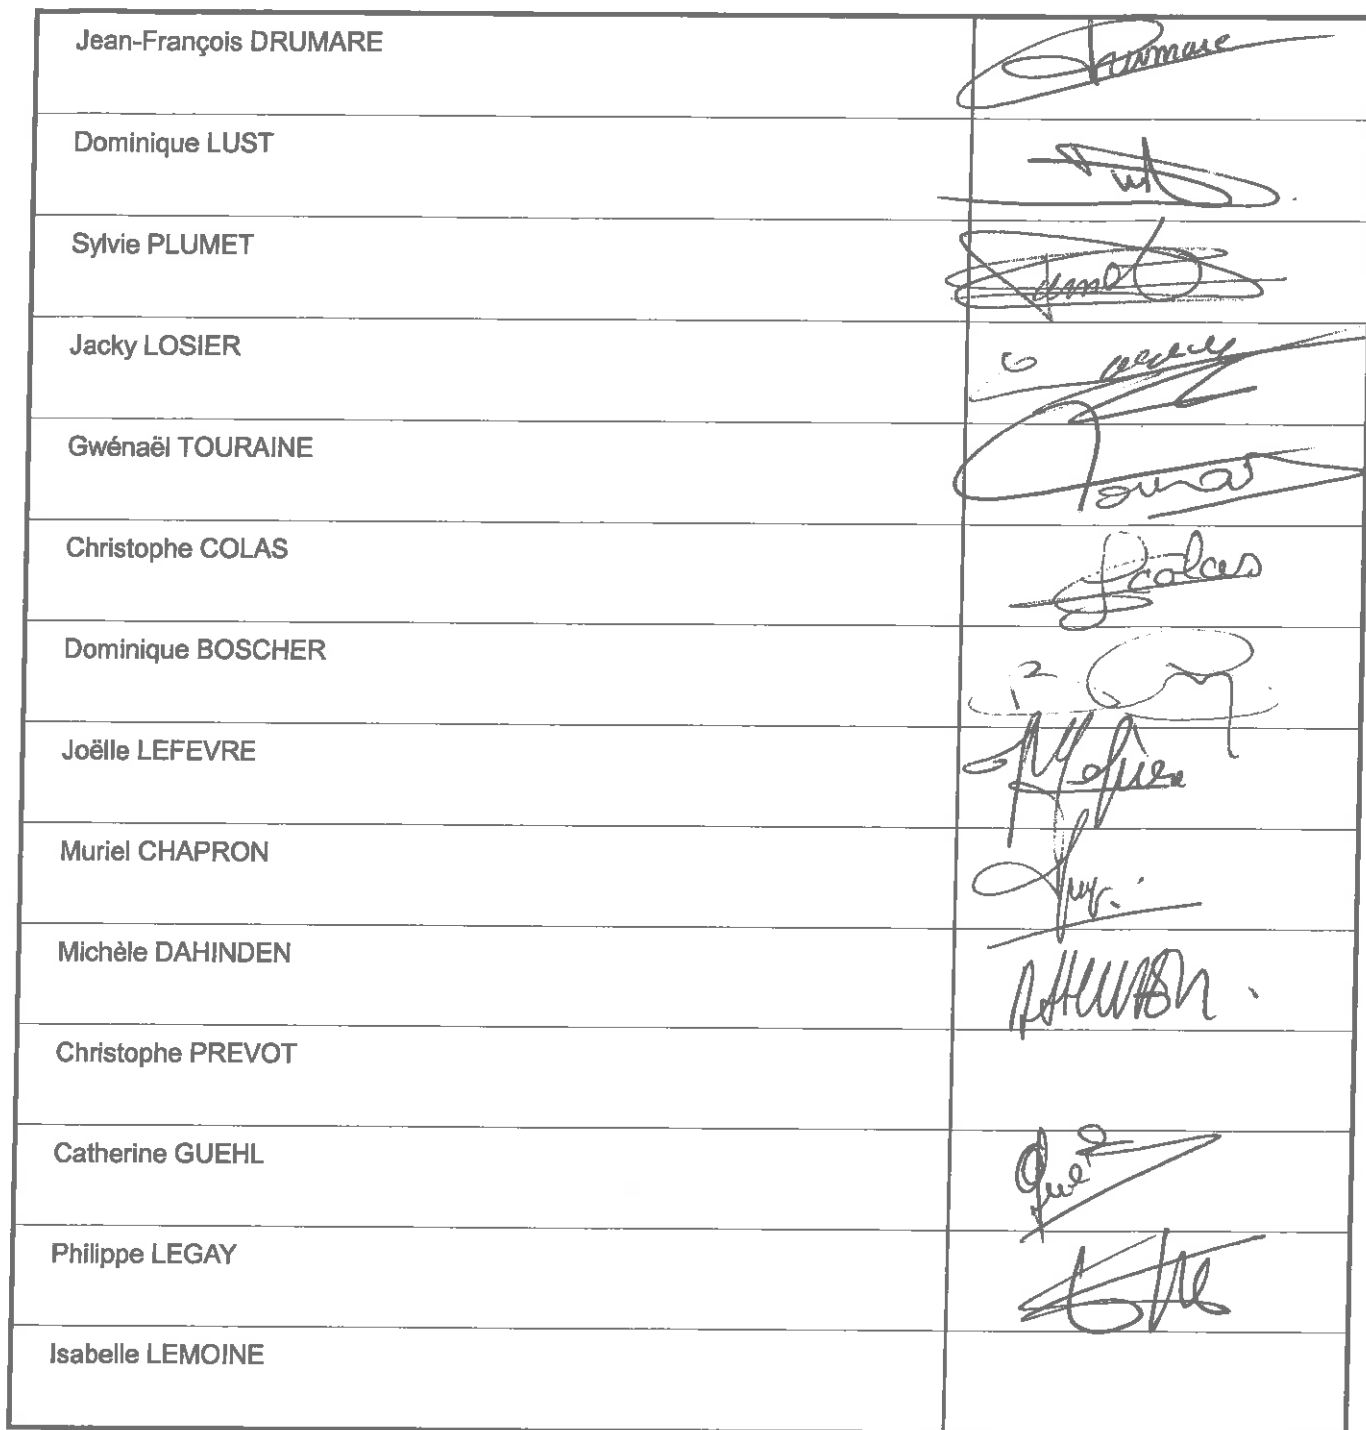 Jean-François DRUMARE
Drumare
Dominique LUST
Sylvie PLUMET
Jacky LOSIER
Gwénaël TOURAINE
Christophe COLAS
Colas
Dominique BOSCHER
Joëlle LEFEVRE
Muriel CHAPRON
Michèle DAHINDEN
Christophe PREVOT
Catherine GUEHL
Philippe LEGAY
Isabelle LEMOINE